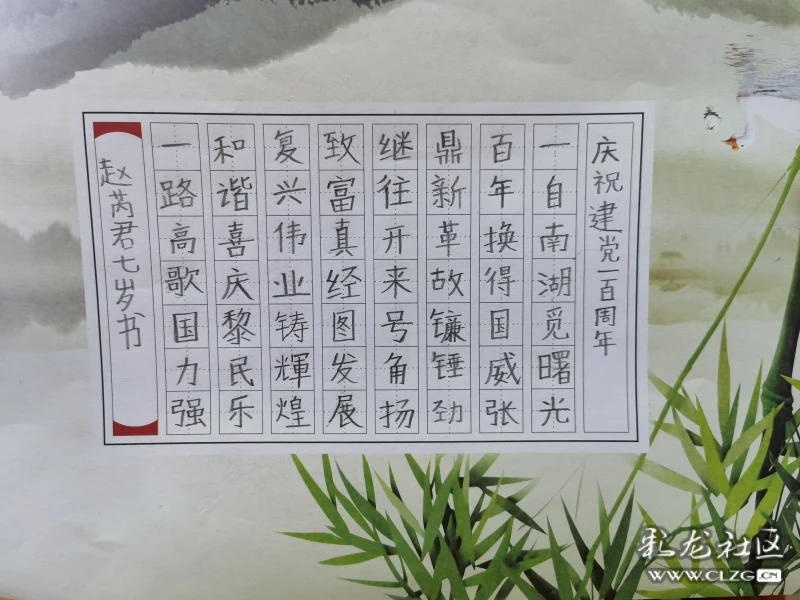 庆祝建党一百周年
一自南湖觅曙光
百年换得国威张
鼎新革故镰锤劲
继往开来号角扬
致富真经图发展
复兴伟业铸輝煌
和谐喜庆黎民乐
一路高歌国力强
赵芮君七岁书
彩龙社区
www.CLZG.CN